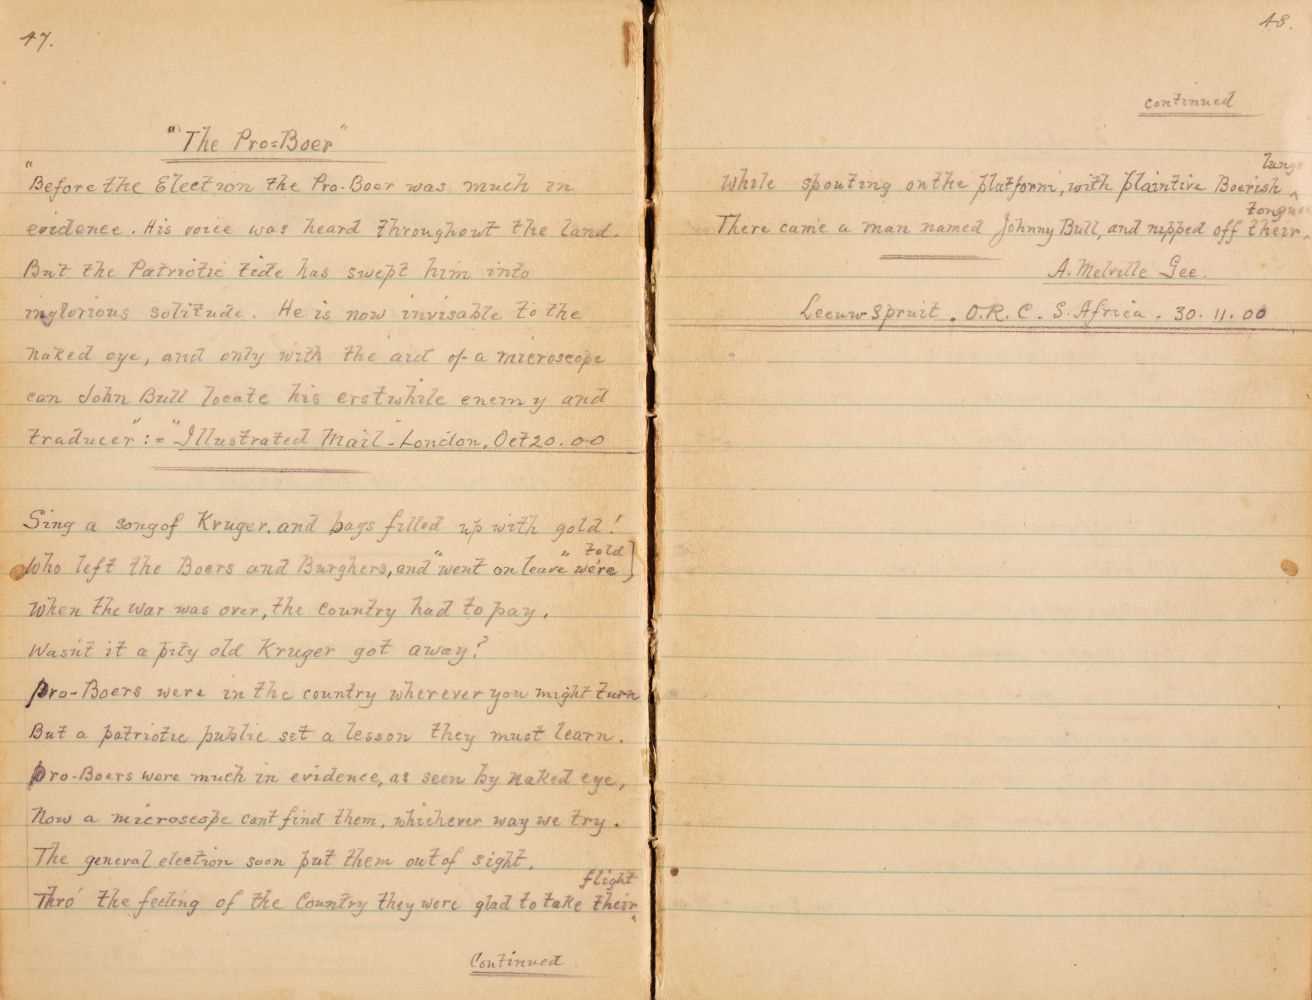 47.
"The Pro=Boer"
"Before the Election the Pro-Boer was much in
evidence. His voice was heard throughout the land.
But the Patriotic tide has swept him into
inglorious solitude. He is now invisable to the
naked eye, and only with the aid of a microscope
can John Bull locate his erstwhile enemy and
traducer":= "Illustrated Mail"-London, Oct 20.00
Sing a song of Kruger, and bags filled up with gold!
told
Who left the Boers and Burghers, and "went on leave" we're
When the War was over, the country had to pay,
Wasn't it a pity old Kruger got away?
Pro-Boers were in the country wherever you might turn
But a patriotic public set a lesson they must learn.
Pro-Boers were much in evidence, as seen by naked eye,
Now a microscope cant find them, whichever way we try.
The general election soon put them out of sight,
flight
Thro' the feeling of the Country they were glad to take their
Continued
48.
continued
lungs
While spouting on the platform, with plaintive Boerish
tongues
There came a man named Johnny Bull, and nipped off their.
A. Melville Gee.
Leeuw Spruit. O.R.C. S. Africa. 30.11.00